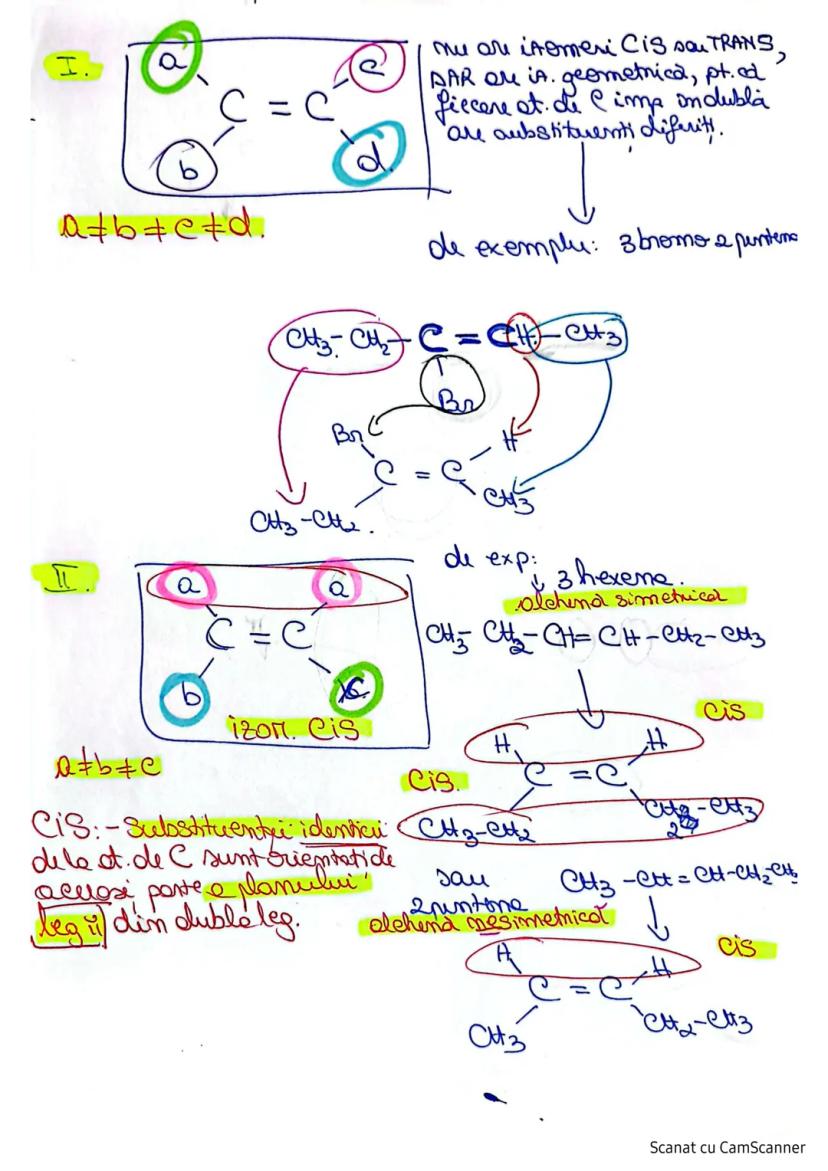 I.
a
c
C = C
b
d
nu are izomeri CIS sau TRANS,
DAR are iz. geometrică, pt. că
fiecare at. de C imp în dublă
are substituenți diferiți.
a ≠ b ≠ c ≠ d.
de exemplu: 3 bromo 2 pentena
CH3 - CH2 - C = CH - CH3
Br
Br
H
C = C
CH3
CH3 - CH2.
II.
de exp:
3 hexena.
alchenă simetrică
a
a
C = C
b
c
izom. CiS
CH3 CH2 - CH = CH - CH2 - CH3
a ≠ b ≠ c
Cis
H
H
C = C
Cis.
CH3 - CH2
CH2 - CH3
2
CiS: - Substituenții identici
de la at. de C sunt orientați de
aceiași parte a planului
leg π din dubla leg.
sau
CH3 - CH = CH - CH2 - CH3
alchenă nesimetrică
Cis
H
H
C = C
CH3
CH2 - CH3
Scanat cu CamScanner